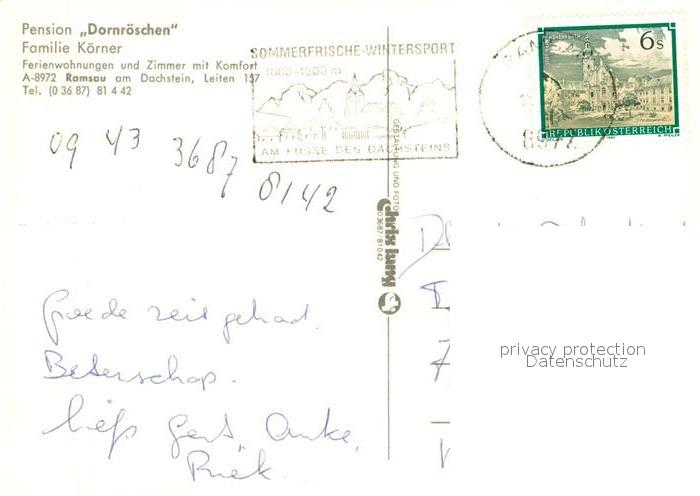 Pension „Dornröschen"
Familie Körner
Ferienwohnungen und Zimmer mit Komfort
A-8972 Ramsau am Dachstein, Leiten 157
Tel. (0 36 87) 81 4 42
SOMMERFRISCHE-WINTERSPORT
1000-1300 m
AM FUSSE DES DACHSTEINS
6s
REPUBLIK ÖSTERREICH
8972
09 43 3687 8142
GESTALTUNG UND FOTO
chris jung
03687/81042
Goede reis gehad.
Beterschap.
liefs Gert, Anke,
Riek.
privacy protection
Datenschutz